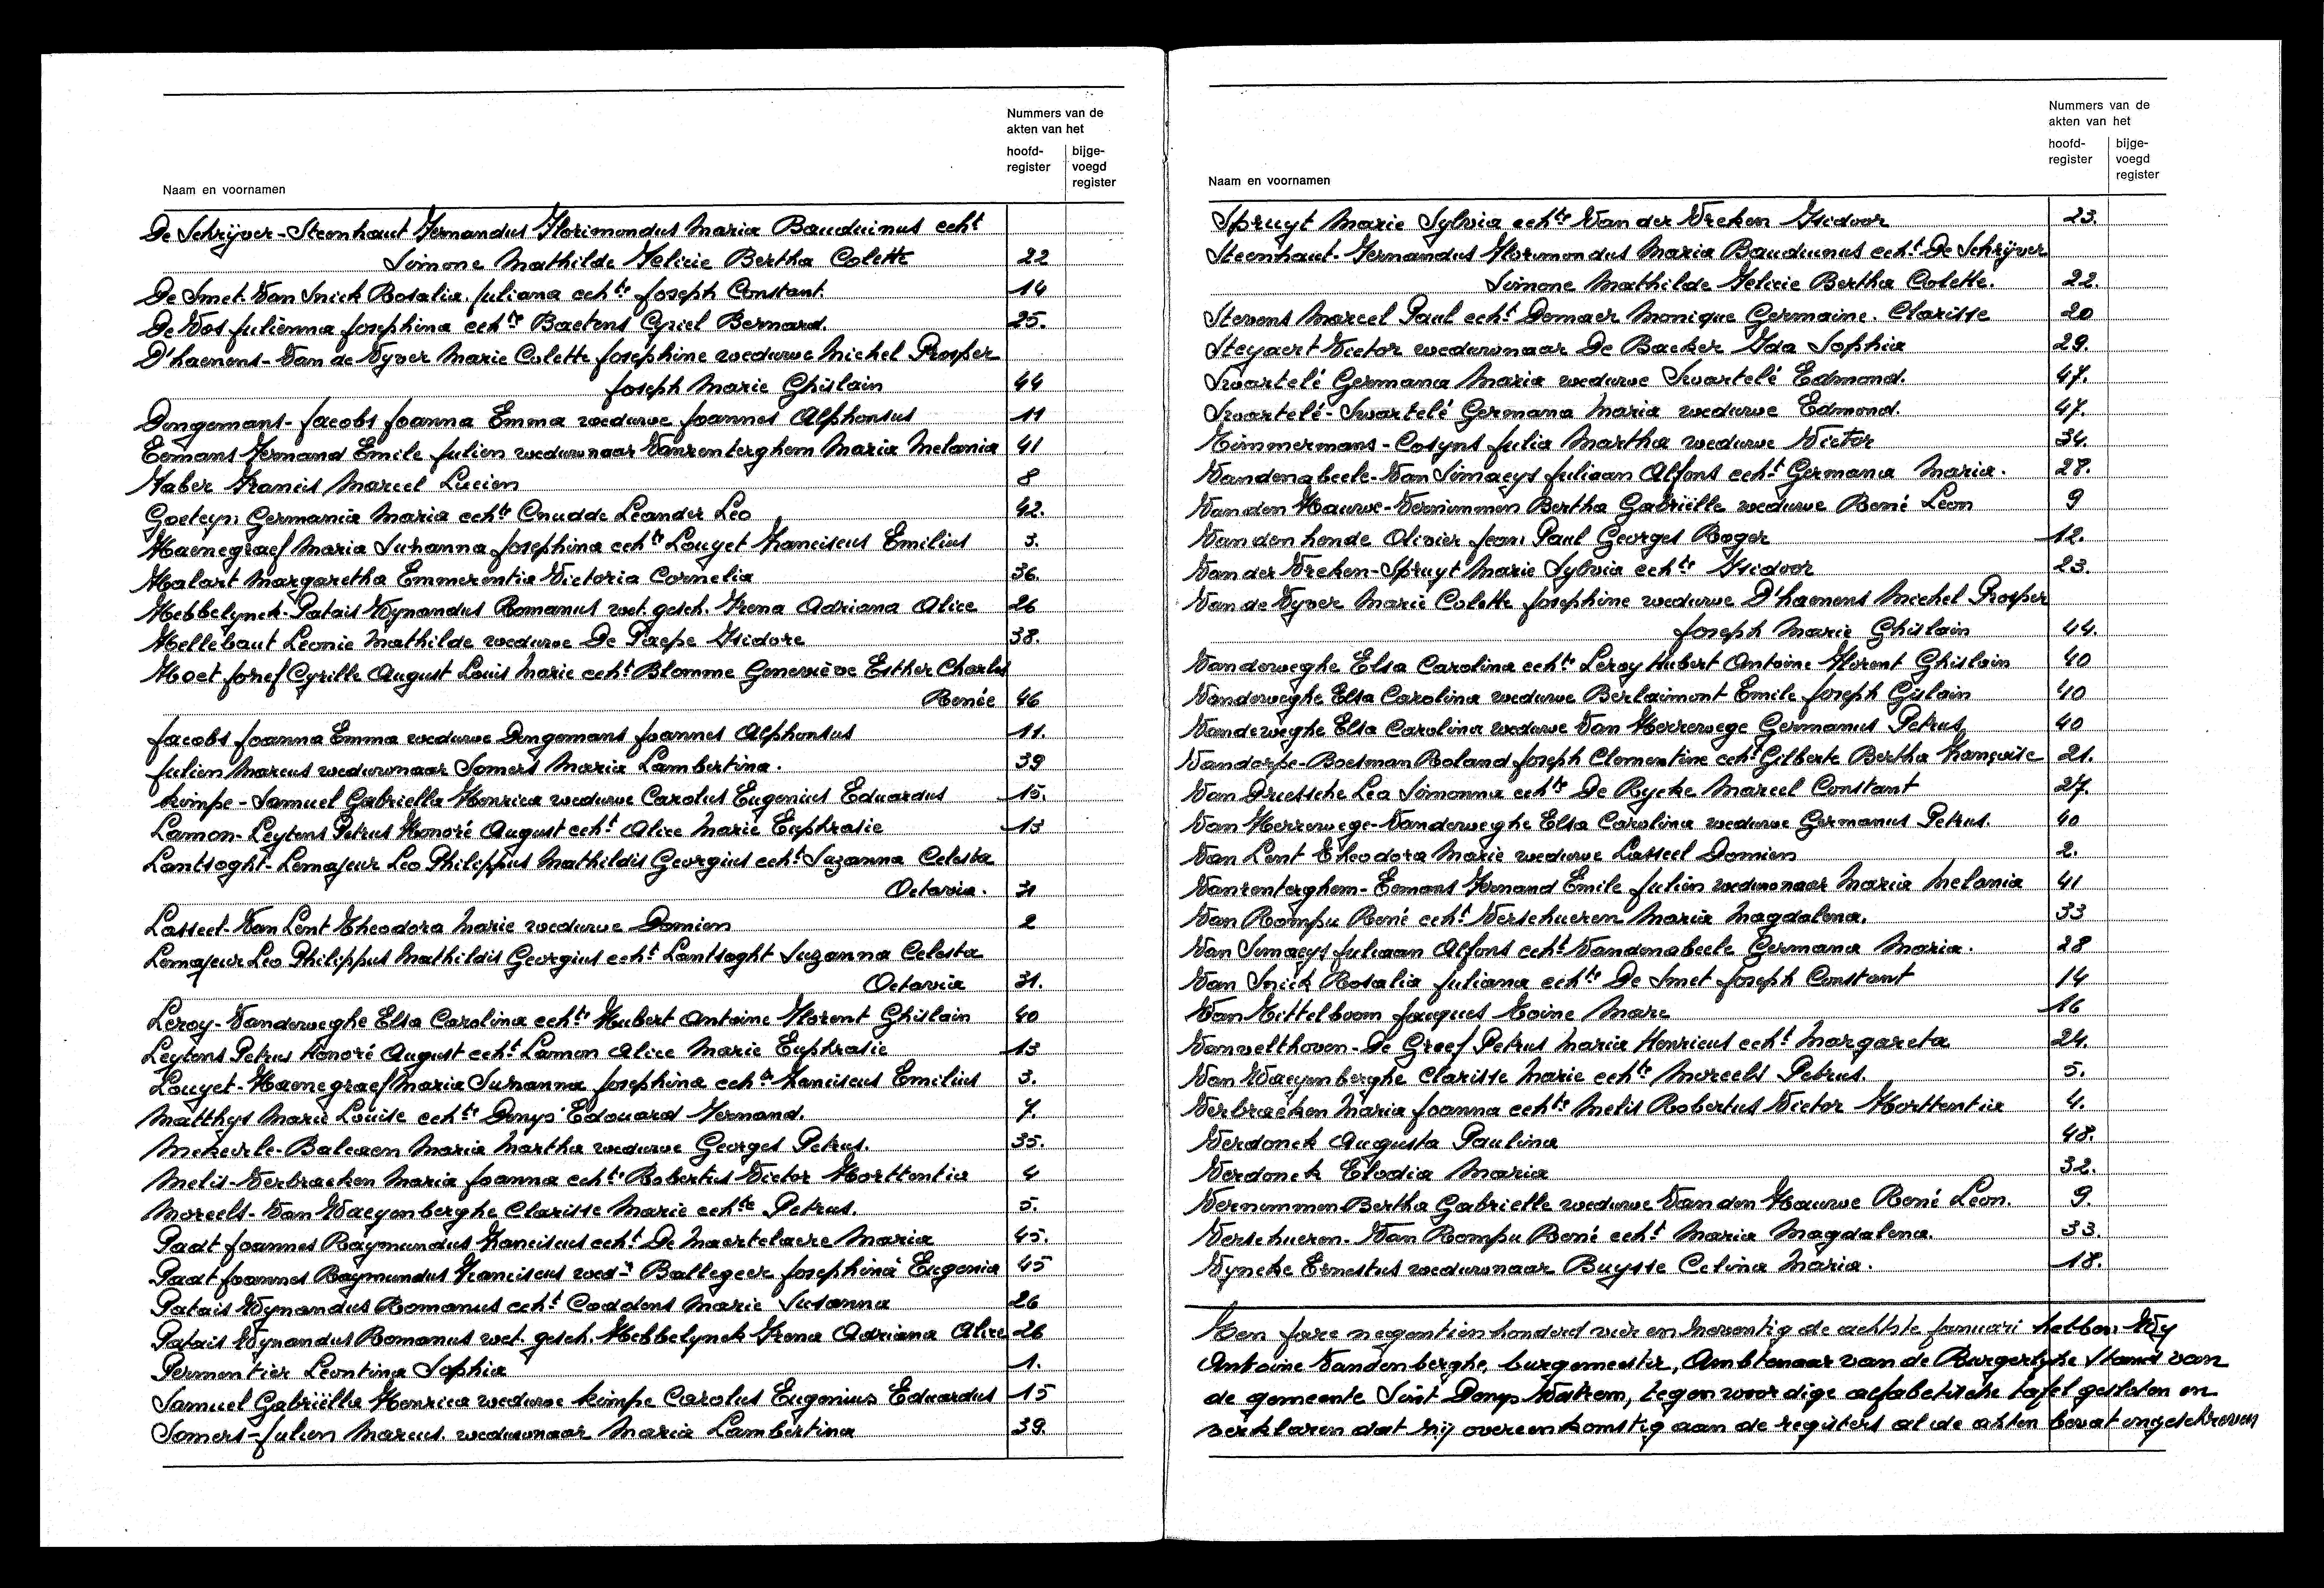 Nummers van de
akten van het
hoofd-
register
bijge-
voegd
register
Naam en voornamen
De Schrijver-Steenhaut Fernandus Florimondus Maria Bauduinus echt
Simone Mathilde Felicie Bertha Colette 22
De Smet-Van Snick Rosalia Juliana echte Joseph Constant. 14
De Vos Julienna Josephina echte Baetens Cyriel Bernard. 25.
D'haenens-Van de Vyver Marie Colette Josephine weduwe Michel Prosper
Joseph Marie Ghislain 44
Dingemans-Jacobs Joanna Emma weduwe Joannes Alphonsus 11
Eemans Fernand Emile Julien weduwnaar Vanrenterghem Maria Melania 41
Faber Francis Marcel Lucien 8
Goeteyn Germania Maria echte Cnudde Leander Leo 42.
Haenegraef Maria Suzanna Josephina echte Louyet Franciscus Emilius 3.
Halart Margaretha Emmerentia Victoria Cornelia 36.
Hebbelynck-Patais Wynandus Romanus wet. gesch. Irena Adriana Alice 26
Hellebaut Leonie Mathilde weduwe De Paepe Isidore 38.
Hoet Jozef Cyrille August Louis Marie echt Blomme Geneviève Esther Charles
Renée 46
Jacobs Joanna Emma weduwe Dingemans Joannes Alphonsus 11.
Julien Marcus weduwnaar Somers Maria Lambertina. 39
Kimpe-Samuel Gabriella Henrica weduwe Carolus Eugenius Eduardus 15.
Lamon-Leytens Petrus Honoré August echt Alice Marie Euphrasie 13
Lantsoght-Lemajeur Leo Philippus Mathildis Georgius echt Suzanna Celesta
Octavia. 31
Lasseel-Van Lent Theodora Marie weduwe Domien 2
Lemajeur Leo Philippus Mathildis Georgius echt Lantsoght Suzanna Celesta
Octavia 31.
Leroy-Vanderweghe Elsa Carolina echte Hubert Antoine Florent Ghislain 40
Leytens Petrus Honoré August echt Lamon Alice Marie Euphrasie 13
Louyet-Haenegraef Maria Suzanna Josephina echte Franciscus Emilius 3.
Matthys Marie Louise echte Denys Edouard Fernand. 7.
Mekeirle-Balcaen Maria Martha weduwe Georges Petrus. 35.
Melis-Verbraeken Maria Joanna echte Robertus Victor Horttentia 4
Moreels-Van Waeyenberghe Clarisse Marie echte Petrus. 5.
Padt Joannes Raymundus Franciscus echt De Maertelaere Maria 45.
Padt Joannes Raymundus Franciscus wed-r Ballegeer Josephina Eugenia 45
Patais Wynandus Romanus echt Coddens Marie Susanna 26
Patais Wynandus Romanus wet. gesch. Hebbelynck Irena Adriana Alice 26
Permentier Leontina Sophia 1.
Samuel Gabriëlla Henrica weduwe Kimpe Carolus Eugenius Eduardus 15
Somers-Julien Marcus. weduwnaar Maria Lambertina 39.
Nummers van de
akten van het
hoofd-
register
bijge-
voegd
register
Naam en voornamen
Spruyt Marie Sylvia echte Van der Vreken Isidoor 23.
Steenhaut-Fernandus Florimondus Maria Bauduinus echt De Schrijver
Simone Mathilde Felicie Bertha Colette. 22.
Stevens Marcel Paul echt Demaer Monique Germaine. Clarisse 20
Steyaert Victor weduwnaar De Backer Ida Sophia 29.
Swartelé Germana Maria weduwe Swartelé Edmond. 47.
Swartelé-Swartelé Germana Maria weduwe Edmond. 47.
Timmermans-Cosyns Julia Martha weduwe Victor 34.
Vandenabeele-Van Simaeys Juliaan Alfons echt Germana Maria. 28.
Van den Hauwe-Vernimmen Bertha Gabriëlle weduwe René Leon 9
Van den hende Olivier Jean Paul Georges Roger 12.
Van der Vreken-Spruyt Marie Sylvia echte Isidoor 23.
Van de Vyver Marie Colette Josephine weduwe D'haenens Michel Prosper
Joseph Marie Ghislain 44.
Vanderweghe Elsa Carolina echte Leroy Hubert Antoine Florent Ghislain 40
Vanderweghe Elsa Carolina weduwe Berlaimont Emile Joseph Gislain 40
Vanderweghe Elsa Carolina weduwe Van Herrewege Germanus Petrus 40
Vandorpe-Boesman Roland Joseph Clementine echt Gilberte Bertha Françoise 21.
Van Driessche Lea Simonna echte De Rycke Marcel Constant 27.
Van Herrewege-Vanderweghe Elsa Carolina weduwe Germanus Petrus. 40
Van Lent Theodora Marie weduwe Lasseel Domien 2.
Vanrenterghem-Eemans Fernand Emile Julien weduwnaar Maria Melania 41
Van Rompu René echt Verschueren Maria Magdalena. 33
Van Simaeys Juliaan Alfons echt Vandenabeele Germana Maria. 28
Van Snick Rosalia Juliana echte De Smet Joseph Constant 14
Van Tittelboom Jacques Marc 16
Vanvelthoven-De Greef Petrus Maria Henricus echt Margareta 24.
Van Waeyenberghe Clarisse Marie echte Moreels Petrus. 5.
Verbraeken Maria Joanna echte Melis Robertus Victor Horttentia 4.
Verdonck Augusta Paulina 48.
Verdonck Elodia Maria 32.
Vernimmen Bertha Gabrielle weduwe Van den Hauwe René Leon. 9.
Verschueren-Van Rompu René echt Maria Magdalena. 33.
Vyncke Ernestus weduwnaar Buysse Celina Maria. 18.
Ten jare negentienhonderd vier en negentig de achtste januari hebben Wy
Antoine Vandenberghe, burgemeester, Ambtenaar van de Burgerlyke Stand van
de gemeente Sint Denys Watrem, tegenwoordige alfabetische tafel gesloten en
verklaren dat zij overeenkomstig aan de registers al de akten bevat ingeschreven